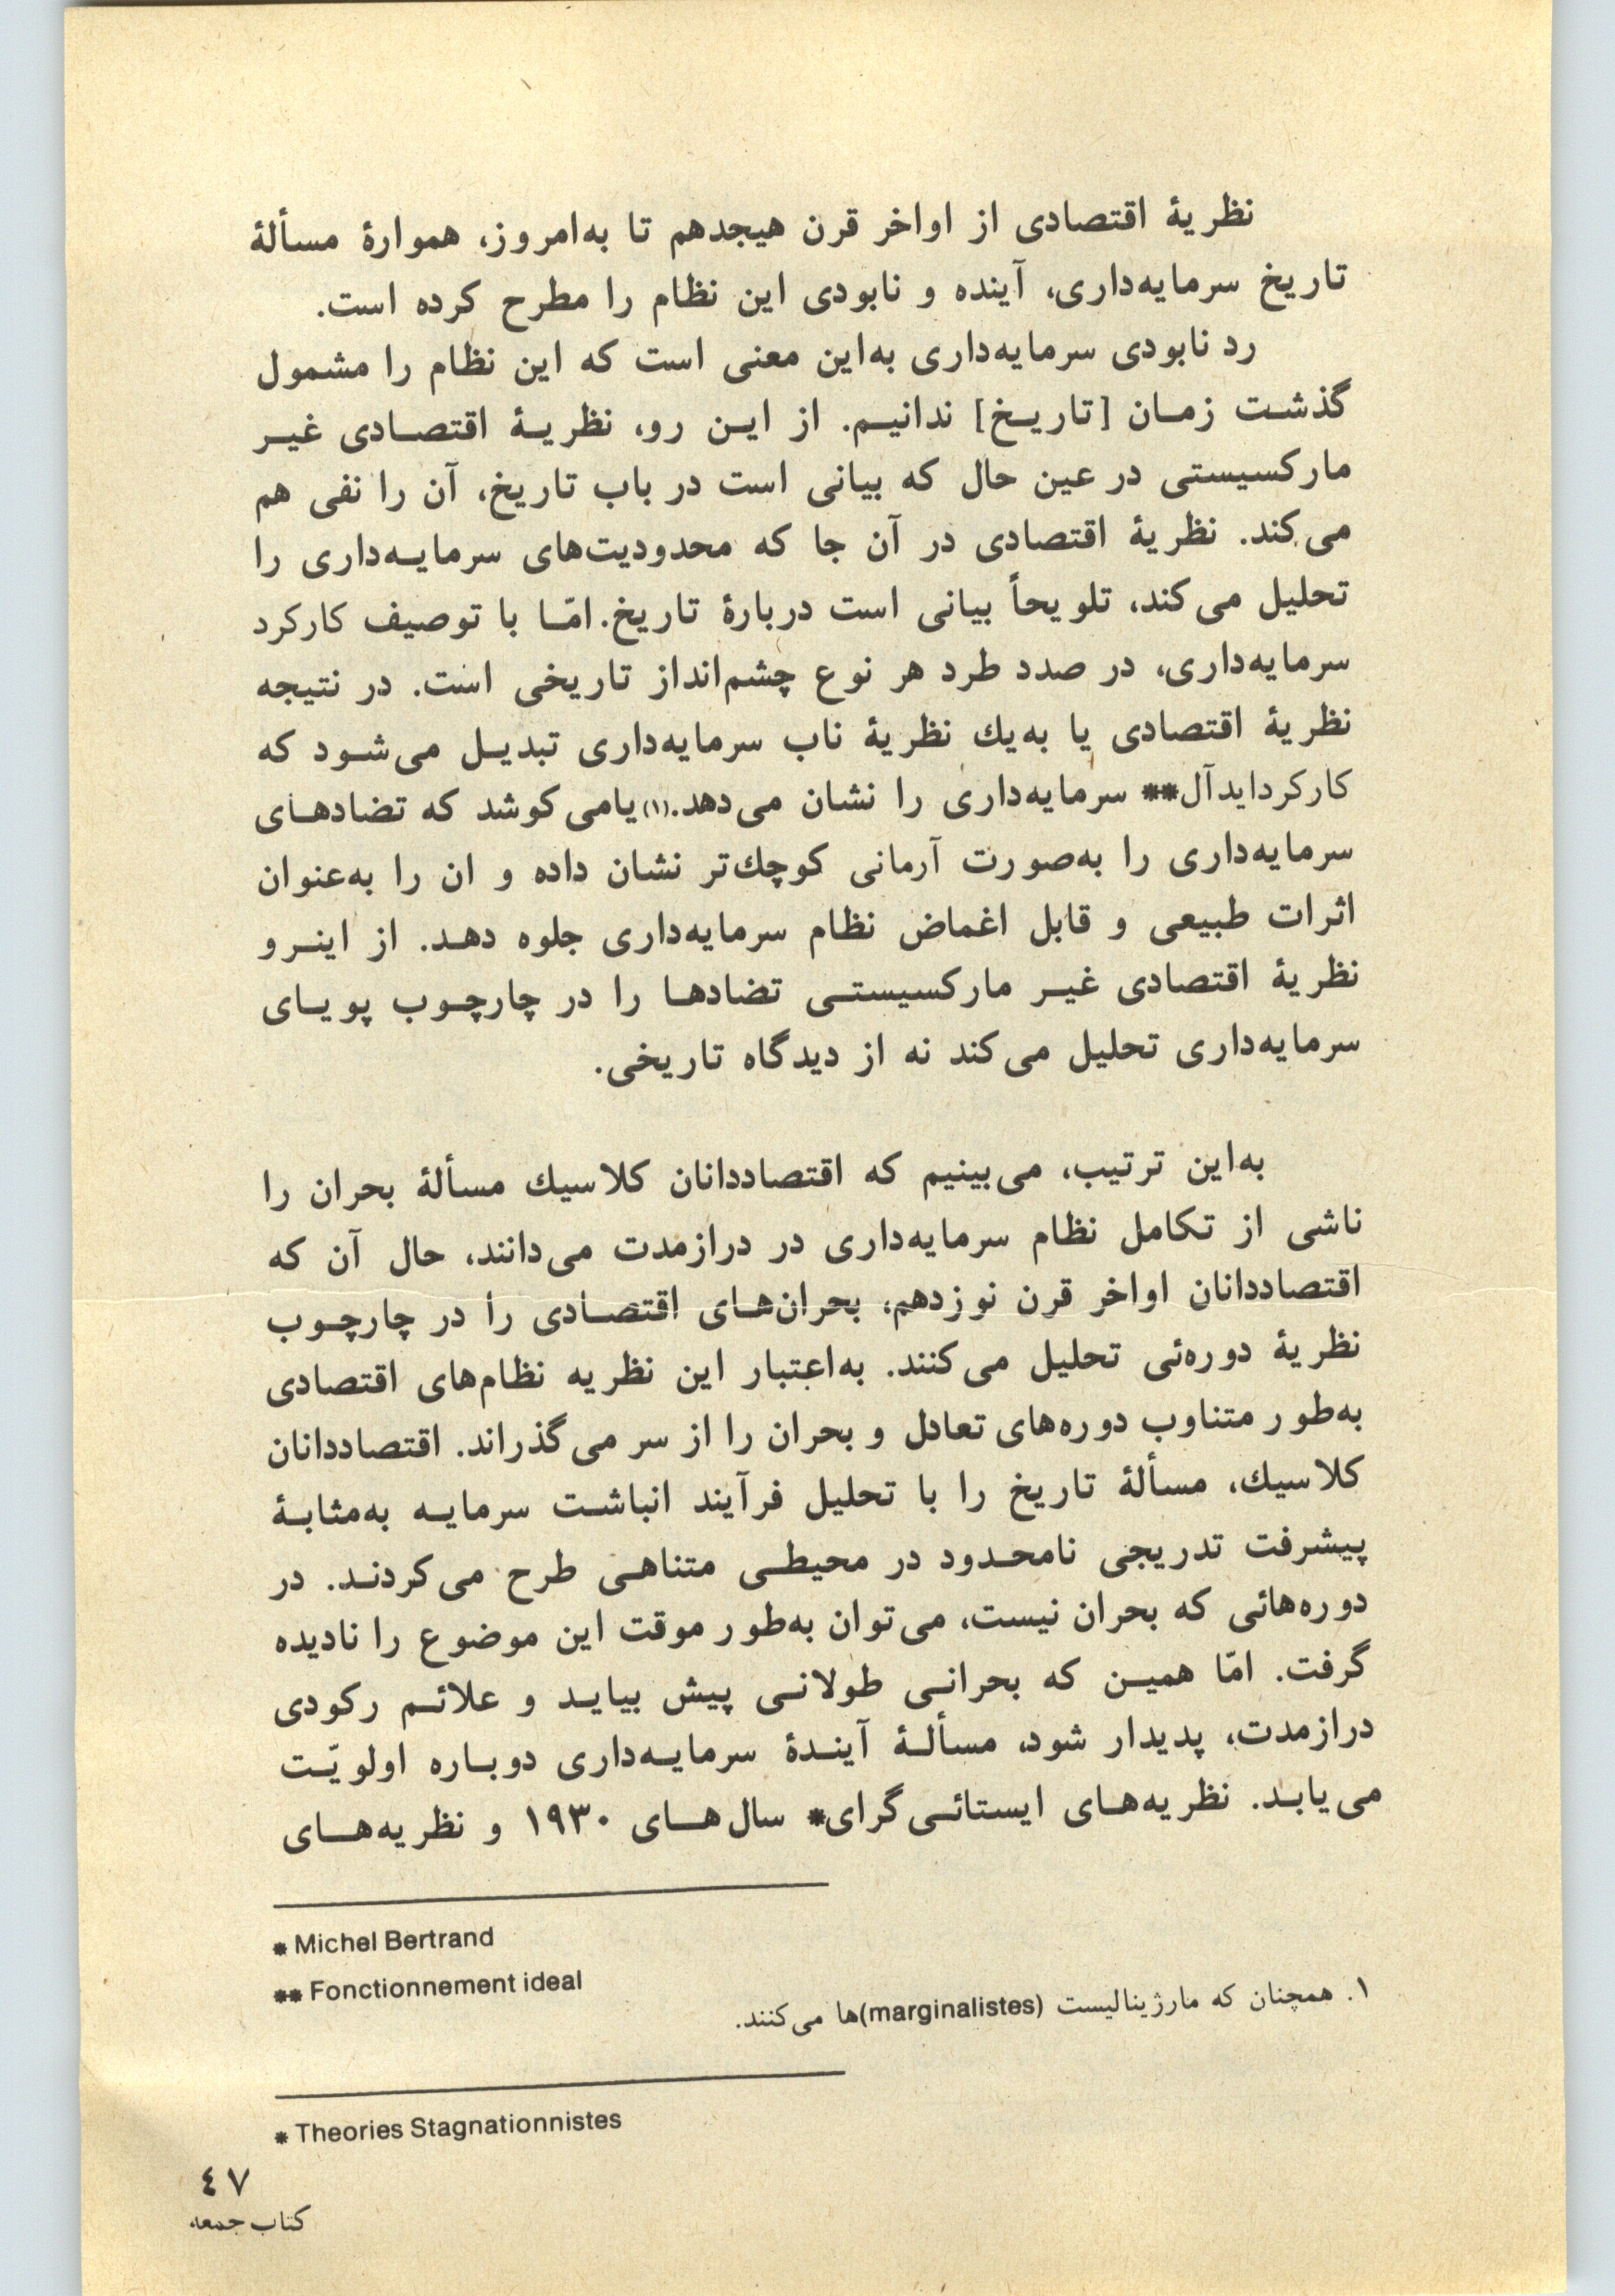 نظریهٔ اقتصادی از اواخر قرن هیجدهم تا به‌امروز، هموارهٔ مسألهٔ
تاریخ سرمایه‌داری، آینده و نابودی این نظام را مطرح کرده است.
رد نابودی سرمایه‌داری به‌این معنی است که این نظام را مشمول
گذشت زمان [تاریخ] ندانیم. از این رو، نظریهٔ اقتصادی غیر
مارکسیستی در عین حال که بیانی است در باب تاریخ، آن را نفی هم
می‌کند. نظریهٔ اقتصادی در آن جا که محدودیت‌های سرمایه‌داری را
تحلیل می‌کند، تلویحاً بیانی است دربارهٔ تاریخ. امّا با توصیف کارکرد
سرمایه‌داری، در صدد طرد هر نوع چشم‌انداز تاریخی است. در نتیجه
نظریهٔ اقتصادی یا به‌یك نظریهٔ ناب سرمایه‌داری تبدیل می‌شود که
کارکردایدآل** سرمایه‌داری را نشان می‌دهد.(۱) یامی‌کوشد که تضادهای
سرمایه‌داری را به‌صورت آرمانی کوچك‌تر نشان داده و ان را به‌عنوان
اثرات طبیعی و قابل اغماض نظام سرمایه‌داری جلوه دهد. از اینرو
نظریهٔ اقتصادی غیر مارکسیستی تضادها را در چارچوب پویای
سرمایه‌داری تحلیل می‌کند نه از دیدگاه تاریخی.
به‌این ترتیب، می‌بینیم که اقتصاددانان کلاسیك مسألهٔ بحران را
ناشی از تکامل نظام سرمایه‌داری در درازمدت می‌دانند، حال آن که
اقتصاددانان اواخر قرن نوزدهم، بحران‌های اقتصادی را در چارچوب
نظریهٔ دوره‌ئی تحلیل می‌کنند. به‌اعتبار این نظریه نظام‌های اقتصادی
به‌طور متناوب دوره‌های تعادل و بحران را از سر می‌گذراند. اقتصاددانان
کلاسیك، مسألهٔ تاریخ را با تحلیل فرآیند انباشت سرمایه به‌مثابهٔ
پیشرفت تدریجی نامحدود در محیطی متناهی طرح می‌کردند. در
دوره‌هائی که بحران نیست، می‌توان به‌طور موقت این موضوع را نادیده
گرفت. امّا همین که بحرانی طولانی پیش بیاید و علائم رکودی
درازمدت، پدیدار شود، مسألهٔ آیندهٔ سرمایه‌داری دوباره اولویّت
می‌یابد. نظریه‌های ایستائی‌گرای* سال‌های ۱۹۳۰ و نظریه‌های
* Michel Bertrand
** Fonctionnement ideal
۱. همچنان که مارژینالیست (marginalistes)ها می‌کنند.
* Theories Stagnationnistes
٤٧
کتاب جمعه